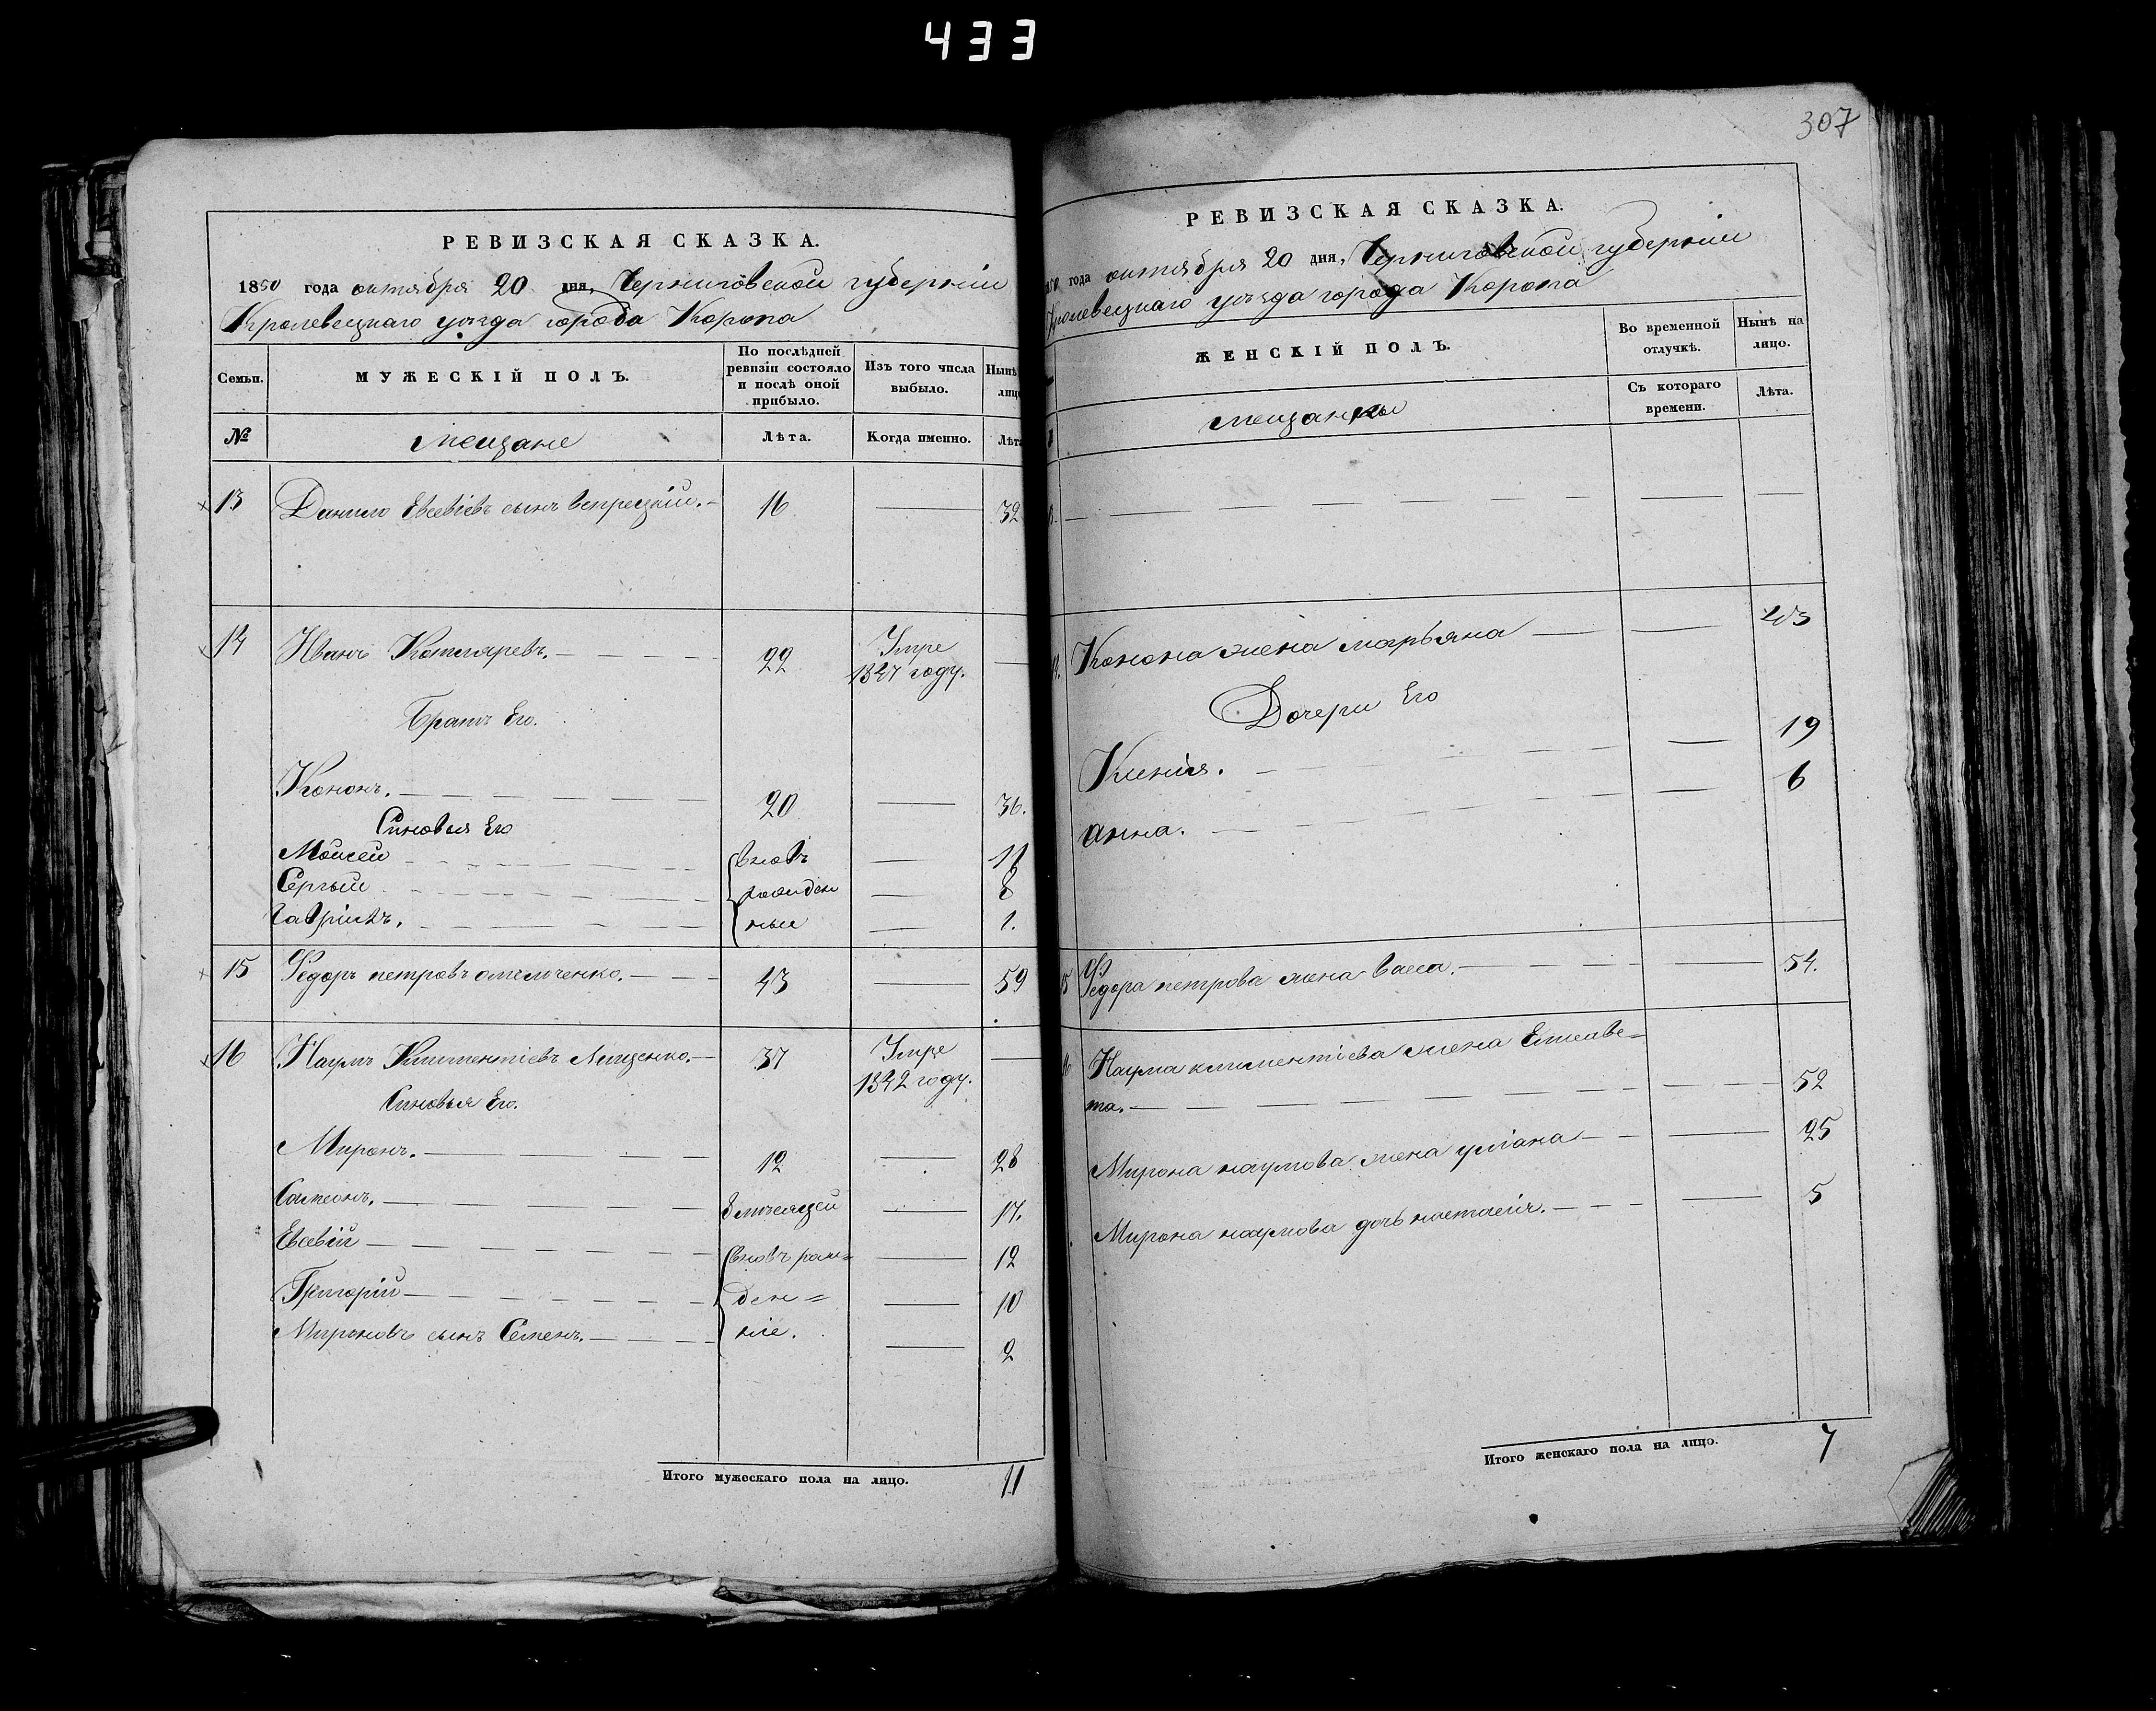 433
РЕВИЗСКАЯ СКАЗКА.
1850 года октября 20 дня, Черниговской губерніи
Кролевецкаго уѣзда города Коропа
Семьи.
МУЖЕСКІЙ ПОЛЪ.
По послѣдней ревизіи состояло и послѣ оной прибыло.
Изъ того числа выбыло.
Нынѣ
лицо
№
мещане
Лѣта.
Когда именно.
Лѣта
13 Данило Евсевіевъ сынъ 16 32
14 Иванъ Котляревъ. 22 Умре 1847 году.
Братъ Его.
Кононъ. 20 36.
Синовья Его
Мойсей вновь 11
Сергѣй рожден 8
Гавріилъ. ные 1.
15 Федоръ петровъ омельченко. 43 59
16 Наумъ Климентіевъ Лященко. 37 Умре 1842 году.
Синовья Его.
Миронъ. 12 28
Самсонъ. 17.
Евсевій вновь рож= 12
Григорій ден= 10
Мироновъ сынъ Семенъ. ніе. 2
Итого мужескаго пола на лицо. 11
307
РЕВИЗСКАЯ СКАЗКА.
года октября 20 дня, Черниговской губерніи
Кролевецкаго уѣзда города Коропа
ЖЕНСКІЙ ПОЛЪ.
Во временной отлучкѣ.
Нынѣ на лицо.
мещанки
Съ котораго времени.
Лѣта.
Конона жена марьяна
Дочери Его
Ксенія. 19
анна. 6
15 Федора петрова жена Васса. 54.
Наума климентіева жена Елисаве=
та. 52
Мирона наумова жена уліана 25
Мирона наумова дочь настасія. 5
Итого женскаго пола на лицо. 7